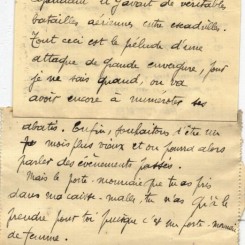 cependant il y avait de véritables
batailles aériennes entre escadrilles.
Tout ceci est le prélude d'une
attaque de grande envergure, pour
je ne sais quand, on va
avoir encore à numéroter ses
abatis. Enfin, souhaitons d'être un
mois plus vieux et on pourra alors
parler des évènements passés.
Mais le porte-monnaie que tu as pris
dans ma caisse-malle, tu n'as qu'à le
prendre pour toi puisque c'est un porte-monnaie
de femme.